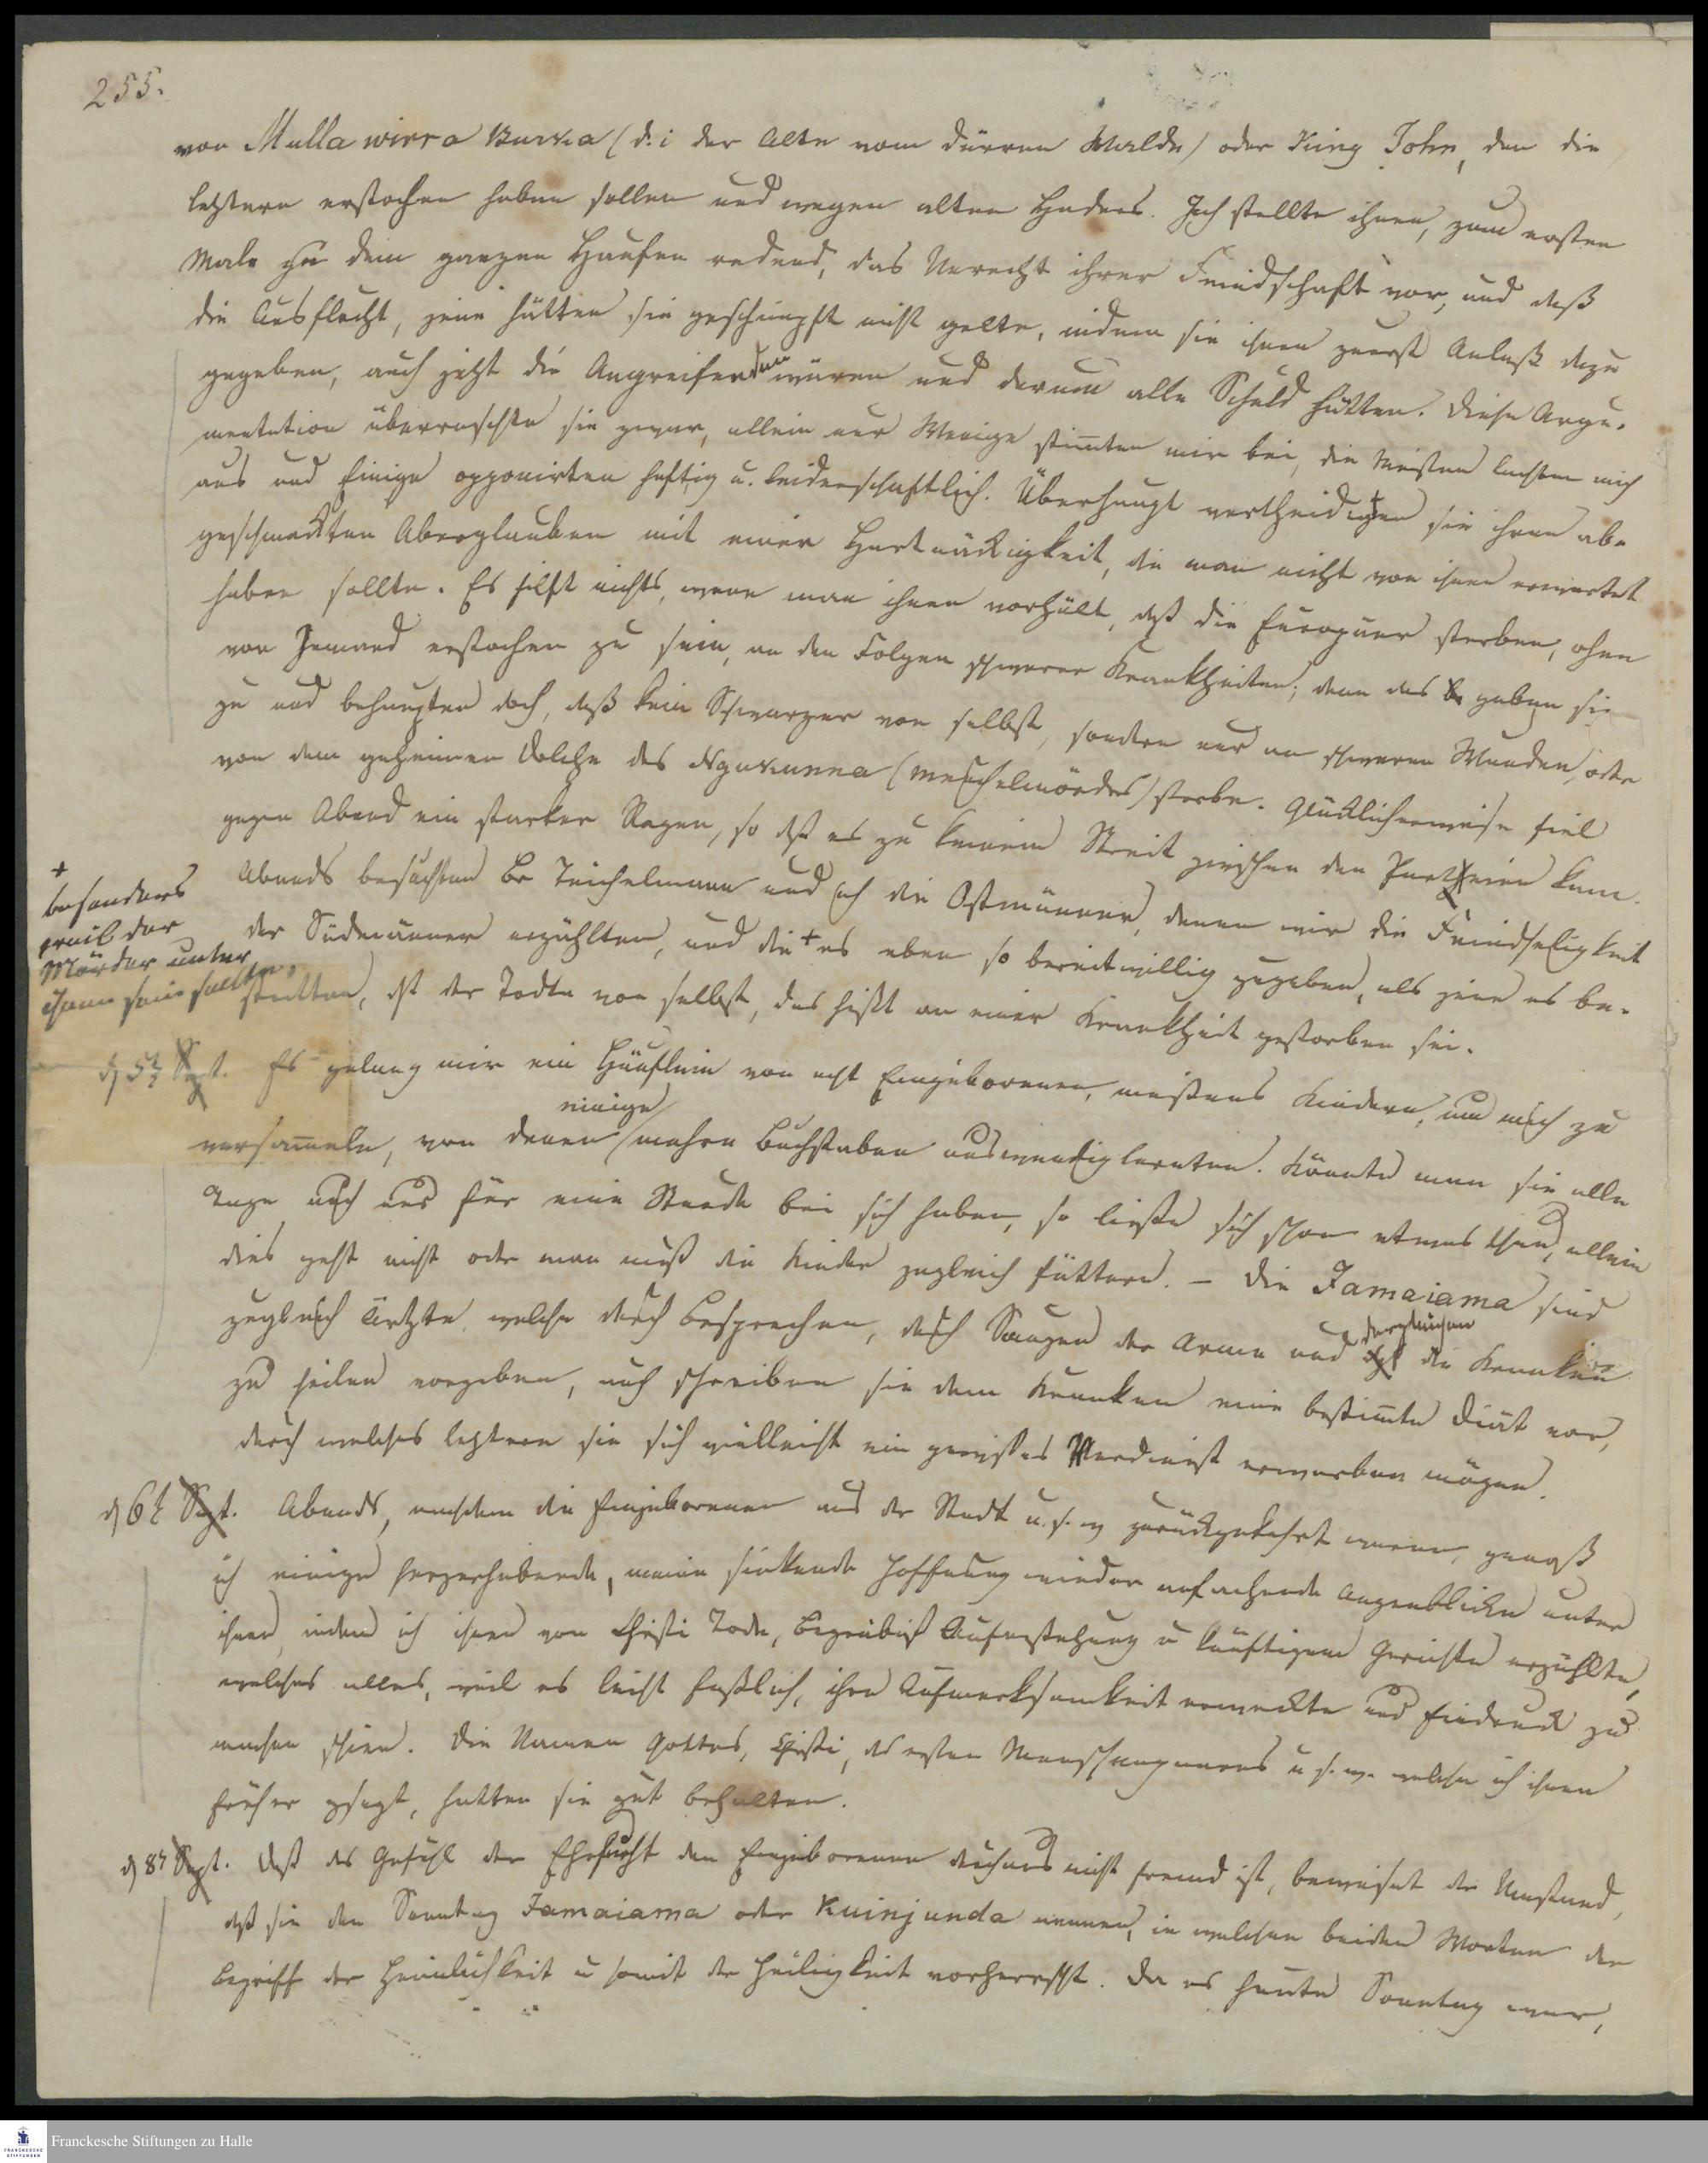 255.
von Mulla wirra Burka (d. i der Alte vom dürren Walde) oder King John, den die
letztern erstochen haben sollen und wegen alten Haders. Ich stellte ihnen, zum ersten
Male zu dem ganzen Haufen redend, das Unrecht ihrer Feindschaft vor, und daß
die Ausflucht, jene hätten sie geschimpft nicht gelte, indem sie ihnen zuerst Anlaß dazu
gegeben, auch jetzt die Angreifenden wären und darum alle Schuld hätten. Diese Argu-
mentation überraschte sie zwar, allein nur Wenige stimten mir bei, die Meisten lachten mich
aus und Einige opponirten heftig u. leidenschaftlich. Überhaupt vertheidigten sie ihren ab-
geschmackten Aberglauben mit einer Hartnäckigkeit, die man nicht von ihnen erwartet
haben sollte. Es hilft nichts, wenn man ihnen vorhält, daß die Europäer sterben, ohne
von Jemand erstochen zu sein, an den Folgen schwerer Krankheiten; denn das geben sie
zu und behaupten doch, daß kein Schwarzer von selbst, sondern nur an schweren Wunden, oder
von dem geheimen Dolche des Ngukunna (Meuchelmörders) sterbe. Glücklicherweise fiel
gegen Abend ein starker Regen, so daß es zu keinem Streit zwischen den Partheien kam.
Abends besuchten Br Teichelmann und ich die Ostmänner, denen wir die Feindseligkeit
der Südmänner erzählten, und die + es eben so bereitwillig zugaben, als jene es be-
+
besonders
weil der
Mörder unter
ihnen sein sollte,
stritten, daß der Todte von selbst, das heißt an einer Krankheit gestorben sei.
d 5t Sept. Es gelang mir ein Häuflein von acht Eingeborenen, meistens Kindern, um mich zu
versameln, von denen einige mehre Buchstaben auswendiglernten. Könnte man sie alle
Tage auch nur für eine Stunde bei sich haben, so ließe sich schon etwas thun, allein
dies geht nicht oder man muß die Kinder zugleich füttern. – Die Jamaiama sind
zugleich Ärtzte, welche durch Besprechen, durch Saugen der Arme und dergleichen die Kranken
zu heilen vorgeben, auch schreiben sie dem Kranken eine bestimte Diät vor,
durch welches letztere sie sich vielleicht ein gewisses Verdienst erwerben mögen.
d 6t Sept. Abends, nachdem die Eingeborenen aus der Stadt u. s. w zurückgekehrt waren, genoß
ich einige herzerhebende, meine sinkende Hoffnung wieder anfachende Augenblicke unter
ihnen, indem ich ihnen von Christi Tode, Begräbniß Auferstehung u künftigem Gerichte erzählte,
welches alles, weil es leicht faßlich, ihre Aufmerksamkeit erweckte und Eindruck zu
machen schien. Die Namen Gottes, Christi, des ersten Menschenpaares u s. w. welche ich ihnen
früher gesagt, hatten sie gut behalten.
d 8t Sept. Daß das Gefühl der Ehrfurcht den Eingeborenen durchaus nicht fremd ist, beweiset der Umstand,
daß sie den Sonntag Jamaiama oder Kuinjunda nennen, in welchen beiden Worten der
Begriff der Heimlichkeit u somit der Heiligkeit vorherrscht. Da es heute Sonntag war,
Franckesche Stiftungen zu Halle